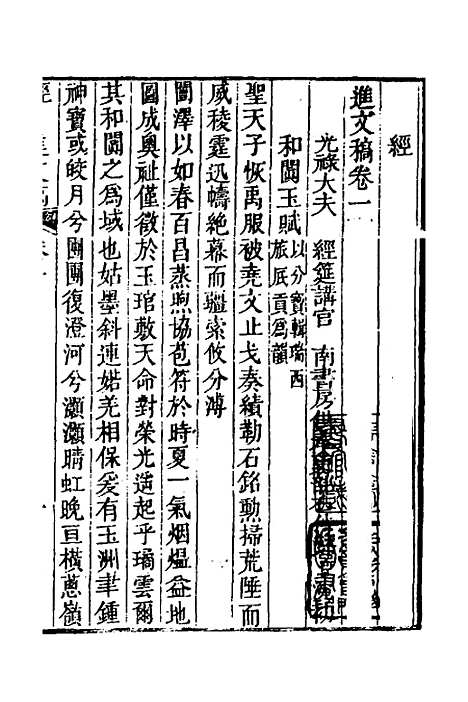 經
進文稿卷一
光祿大夫 經筵講官 南書房供奉
和闐玉賦 以分寶輯瑞西
旅厎貢為韻
聖天子恢禹服被堯文止戈奏績勒石銘勲掃荒陲而
威稜霆迅幬絶幕而疆索攸分溥
闓澤以如春百昌蒸煦協苞符於時夏一氣烟熅益地
圖成奥祉僅徵於玉琯敷天命對榮光遥起乎璚雲爾
其和闐之為域也姑墨斜連婼羌相保爰有玉洲聿鍾
神寶或皎月兮團團復澄河兮灝灝晴虹晚亘橫蔥嶺